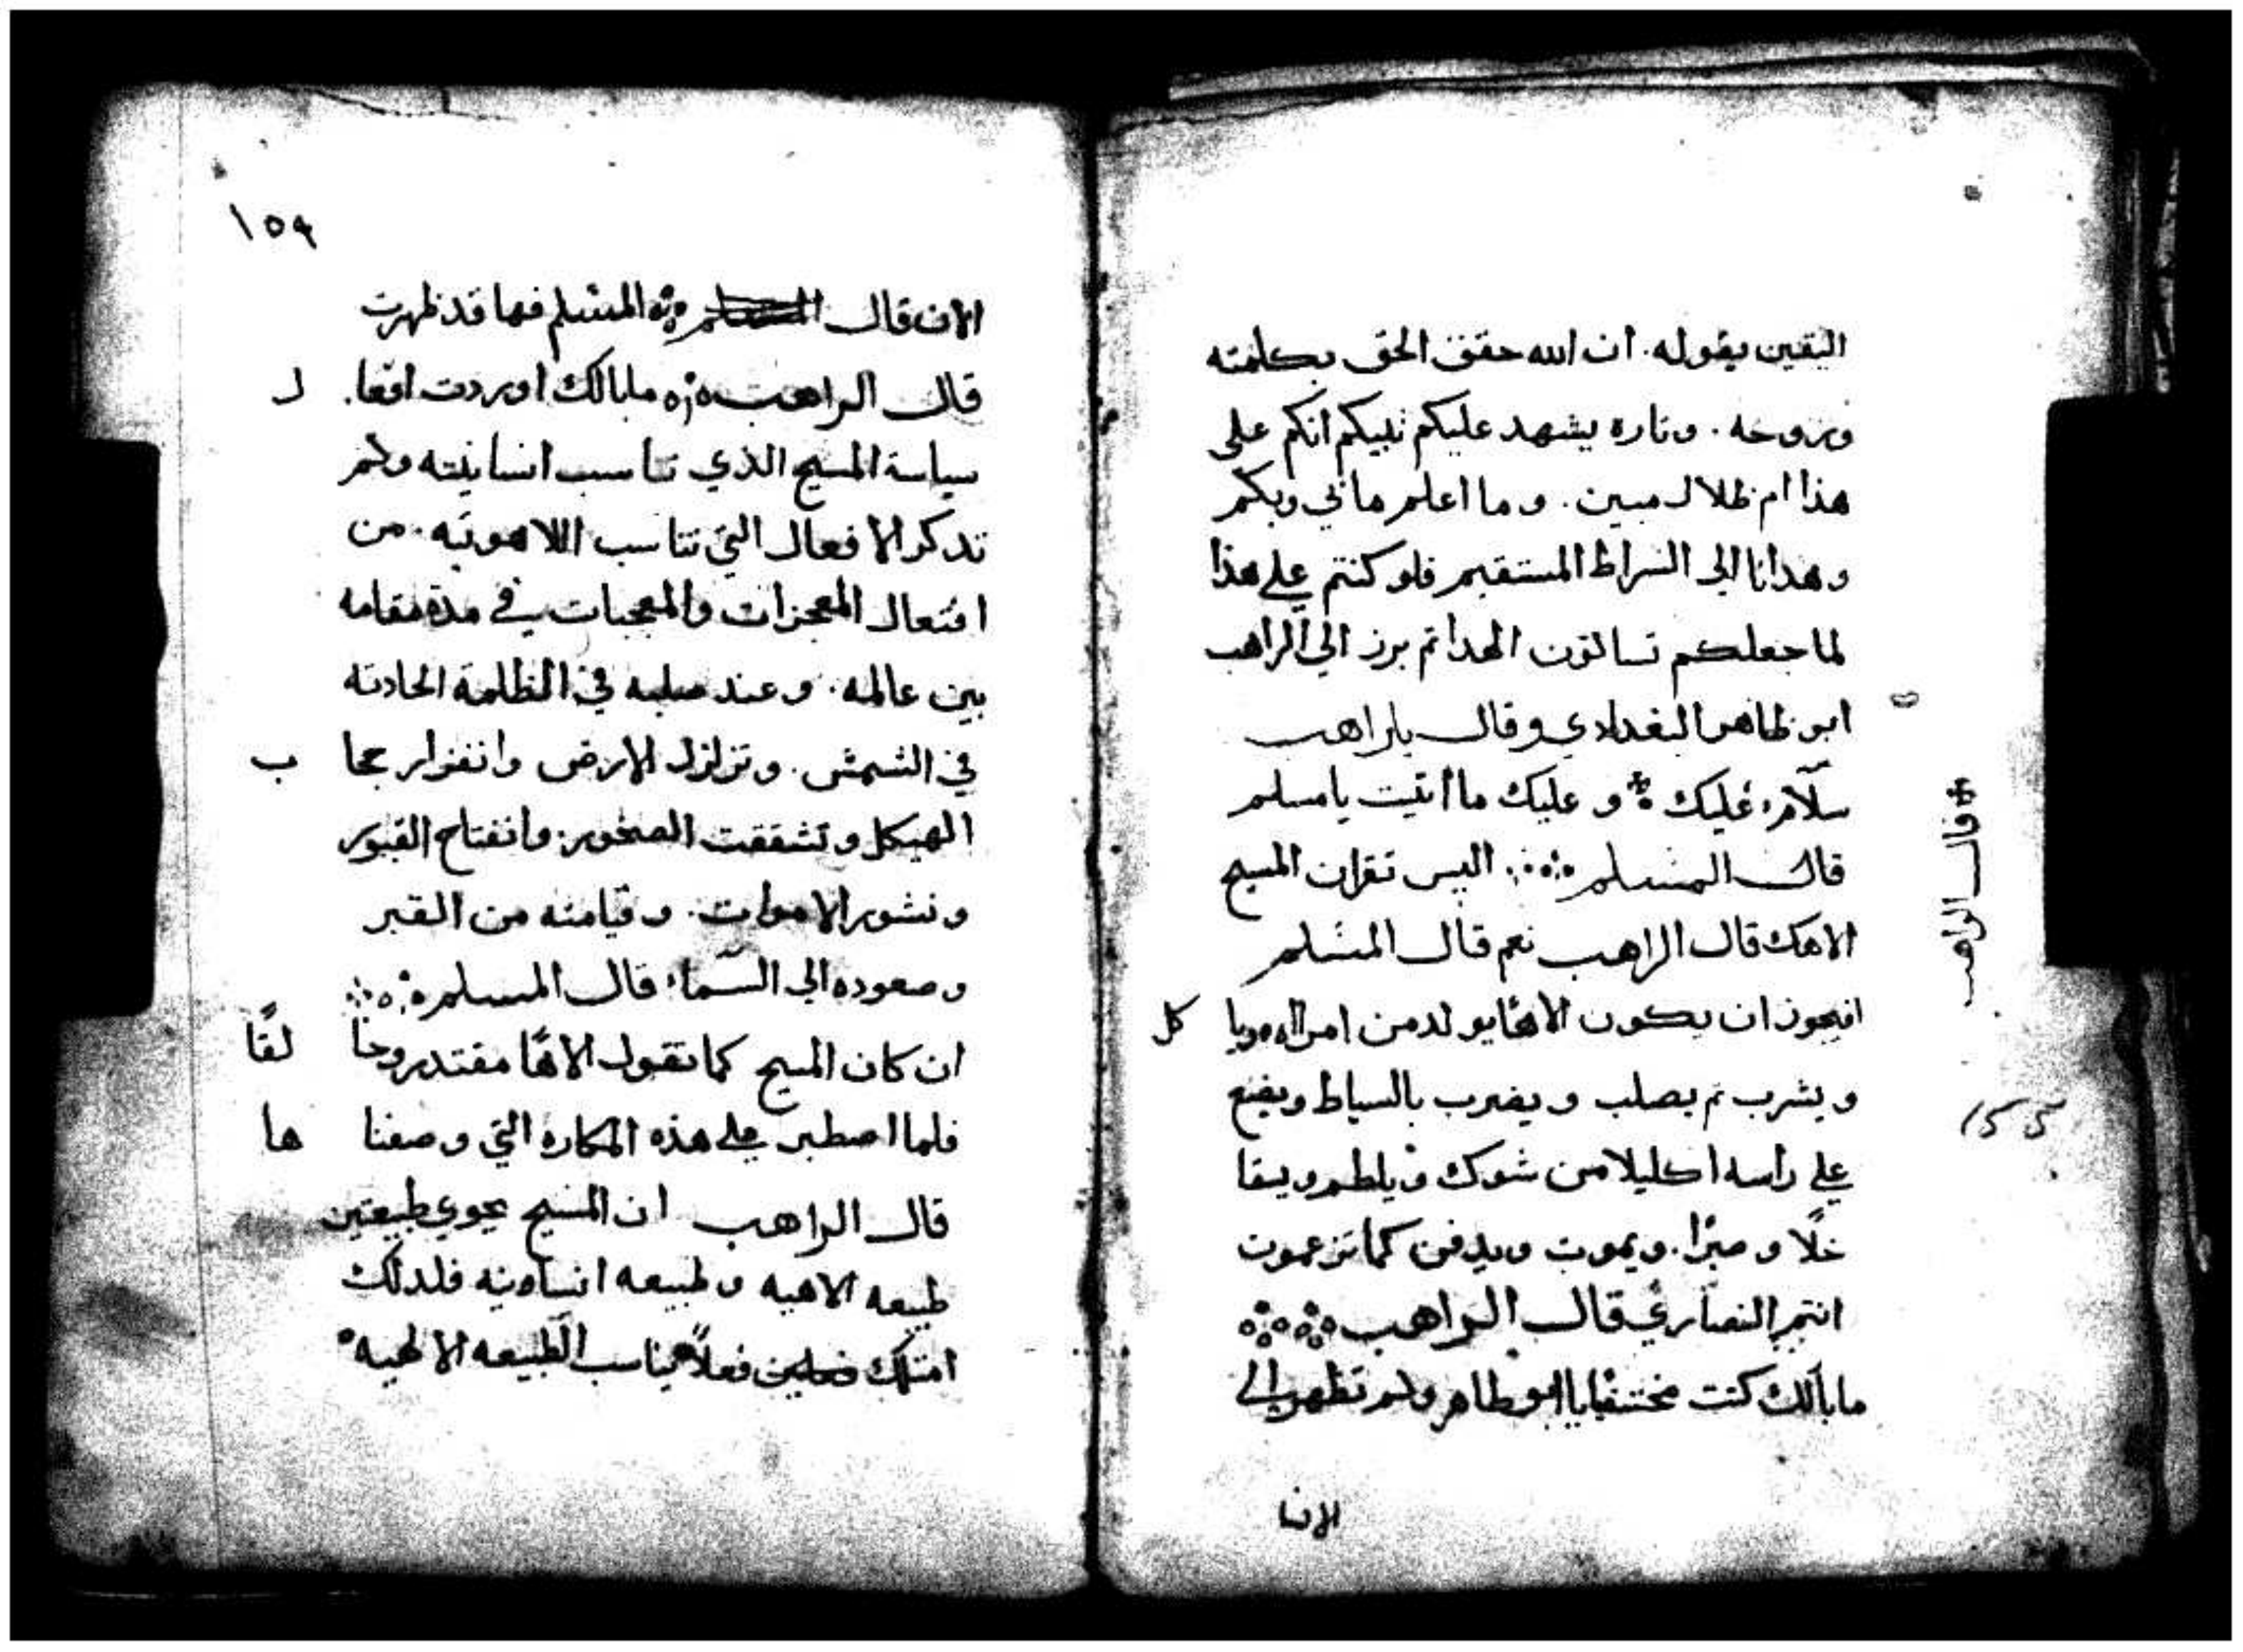 اليقين بقوله. ان الله حقق الحق بكلمته
وبروحه. وتاره يشهد عليكم نبيكم انكم على
هذا ام ظلال مبين. وما اعلم ما بي وبكم
وهدانا الى السراط المستقيم فلو كنتم على هذا
لما جعلكم تسالون الهدا ثم برز الي الراهب
ابو ظاهر البغدادي وقال ياراهب
سلام عليك و عليك ما اتيت يامسلم
قال الراهب
قال المسلم اليس تقران المسيح
الاهك قال الراهب نعم قال المسلم
افيجوز ان يكون الاهًا يولد من امراه ويا كل
ويشرب ثم يصلب ويضرب بالسياط ويضع
علي راسه اكليلا من شوك ويلطم ويسقا
خلًا و مرًا. ويموت ويدفن كما تزعمون
انتم النصارى قال الراهب
ما بالك كنت مختفيا يا ابو طاهر ولم تظهر الى
الان
١٥٩
الان قال المسلم فها قد ظهرت
قال الراهب ما بالك اوردت افعا. ل
سياسة المسيح الذي تناسب انسانيته ولم
تدكر الافعال التي تناسب اللاهوتيه. من
افتعال المعجزات والمعجبات في مدة مقامه
بين عالمه. وعند صلبه في الظلمة الحادثه
في الشمش. وتزلزل الارض وانفزار حجا ب
الهيكل وتشققت الصخور. وانفتاح القبور
ونشور الاموات. وقيامته من القبر
وصعوده الى السماء قال المسلم
ان كان المسيح كما تقول الاهًا مقتدر وخا لقًا
فلما اصطبر على هذه المكاره التي وصفنا ها
قال الراهب ان المسيح يحوي طبيعتين
طبيعه الاهيه وطبيعه انسانيه فلدلك
امتلك فعلين فعلاً يناسب الطبيعه الالهيه